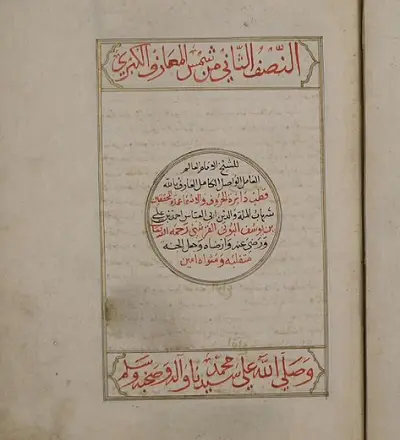 النصف الثاني من شمس المعارف الكبرى
للشيخ الامام العالم
العامل الواصل الكامل العارف بالله
قطب دائرة الحروف والاسماء عمدة المحققين
شهاب الملة والدين ابى العباس احمد بن على
بن يوسف البونى القرشى رحمه الله تعالى
ورضى عنه وارضاه وجعل الجنة
متقلبه ومثواه امين
وصلى الله على سيدنا محمد وآله وصحبه وسلم